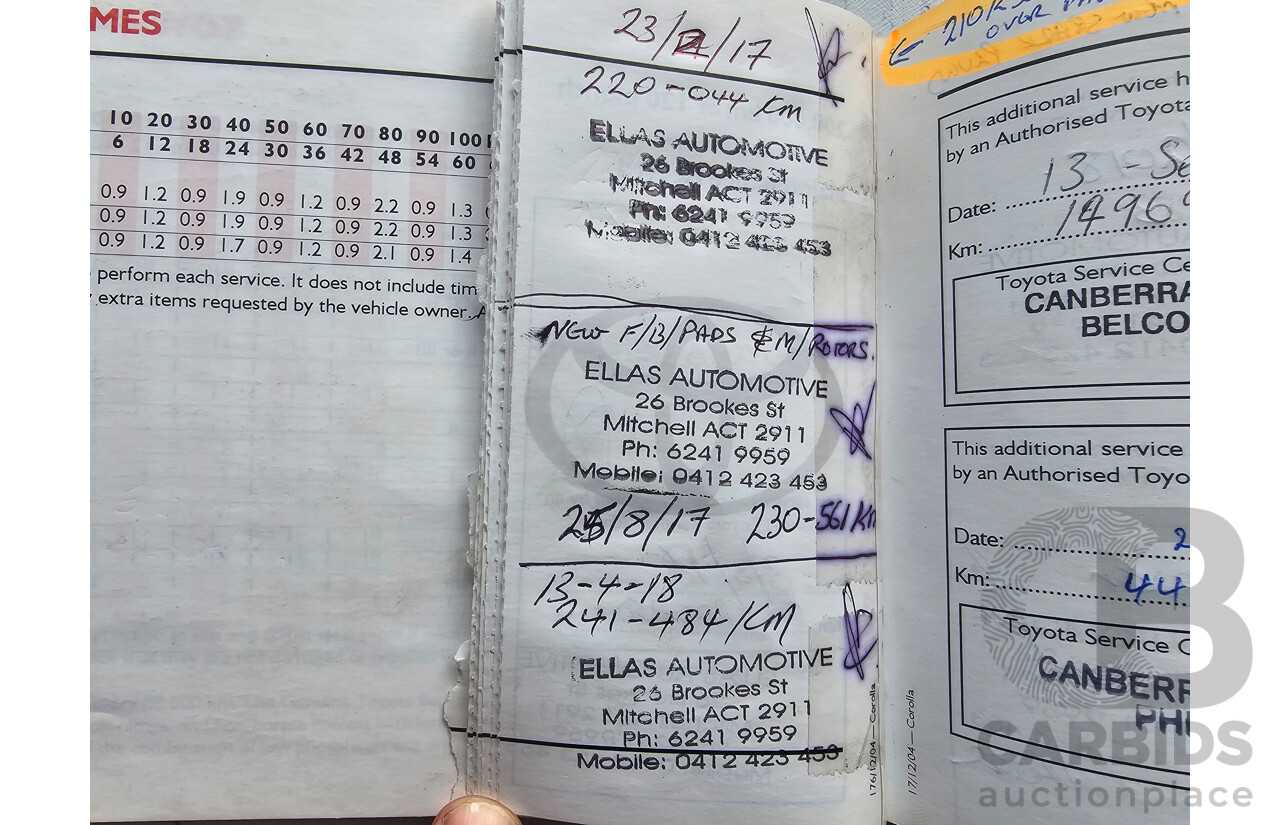 MES
10 20 30 40 50 60 70 80 90 100
6 12 18 24 30 36 42 48 54 60
0.9 1.2 0.9 1.9 0.9 1.2 0.9 2.2 0.9 1.3
0.9 1.2 0.9 1.9 0.9 1.2 0.9 2.2 0.9 1.3
0.9 1.2 0.9 1.7 0.9 1.2 0.9 2.1 0.9 1.4
perform each service. It does not include tim
extra items requested by the vehicle owner.
23/2/17
220-044 KM
ELLAS AUTOMOTIVE
26 Brookes St
Mitchell ACT 2911
Ph: 6241 9959
Mobile: 0412 423 453
NEW F/B/PADS & M/ROTORS.
ELLAS AUTOMOTIVE
26 Brookes St
Mitchell ACT 2911
Ph: 6241 9959
Mobile: 0412 423 453
25/8/17 230-561 KM
13-4-18
241-484/KM
ELLAS AUTOMOTIVE
26 Brookes St
Mitchell ACT 2911
Ph: 6241 9959
Mobile: 0412 423 453
176/12/04 — Corolla
17/12/04 — Corolla
← 210K
OVER
This additional service h
by an Authorised Toyota
Date: 13 - Se
Km: 14969
Toyota Service Ce
CANBERRA
BELCO
This additional service
by an Authorised Toyo
Date: 2
Km: 44
Toyota Service C
CANBERR
PHI
CARBIDS
auctionplace